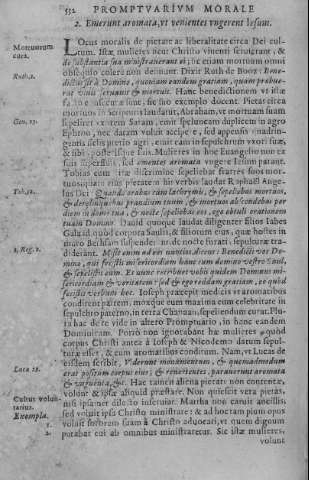 552 PROMPTVARIVM MORALE
2. Emerunt aromata, vt venientes vngerent Iesum.
Mortuorum cura.
LOcus moralis de pietate ac liberalitate circa Dei cultum. Istæ mulieres nec Christo viuenti seruierunt, &
de substantia sua ministrauerunt ei; sic etiam mortuum omni
obsequio colere non desinunt. Dixit Ruth de Booz: Bene-
Ruth.2.
dictus sit à Domino, quoniam eandem gratiam, quam præbue-
rat viuis seruauit & mortuis. Hanc benedictionem vt istæ
suo exemplo docent. Pietas circa
mortuos in Scripturis laudatur, Abraham, vt mortuam suam
Gen. 23.
sepeliret vxorem Saram, emit speluncam duplicem in agro
Ephron, nec daram voluit accipere, sed appensis quadrin-
gentis siclis pretio agri, emit eam in sepulchrum vxori suæ,
& sibi, posteris suis. Mulieres in hoc Euangelio non ex
suis sed ementes aromata vngere Iesum parant.
Tobias cum vitæ discrimine sepeliebat fratres suos mor-
tuosquorum eius pietatem his verbis laudat Raphaël Ange-
Tob.12.
lus Dei Quando orabas cum lachrymis, & sepeliebas mortuos,
& derelinquebas prandium tuum, & mortuos abscondebas per
diem in domo tua, & nocte sepeliebas eos, ego obtuli orationem
tuam Domino. Dauid quoque laudat diligenter filios Iabes
Galaad, quod corpora Saulis, & filiorum eius, quæ hostes in
muro Bethsan suspenderant, de nocte furati, sepulturæ tra-
2. Reg. 2.
diderant. Misit enim ad eos nuntios, dicens: Benedicti vos Do-
mino, qui fecistis misericordiam hanc cum domino vestro Saul,
& sepelistis eum. Et nunc retribuet vobis quidem Dominus mi-
sericordiam & veritatem: sed & ego reddam gratiam, eo quod
fecistis verbum hoc. Ioseph præcepit medicis vt aromatibus
condirent patrem, moxque eum maxima cum celebritate in
sepulchro paterno, in terra Chanaan, sepeliendum curat. Plu-
ra hac de re vide in altero Promptuario, in hanc eandem
Dominicam. Porrò non ignorabant hæ mulieres quod
corpus Christi antea à Ioseph & Nicodemo datum sepul-
turæ esset, & cum aromatibus conditum. Nam, vt Lucas de
eisdem scribit, Viderunt monumentum, & quemadmodum
Luca 23.
erat positum corpus eius, & reuertentes, parauerunt aromata
& vnguenta, &c. Hac tamen aliena pietate non contentæ,
volunt & ipsæ aliquid præstare. Non quiescit vera pietas,
Cultus volun-
tarius.
nisi ipsa met dilecto inseruiat. Martha non curauit ancillis,
Exempla.
sed voluit ipsa Christo ministrare: & ad hoctam pium opus
1.
voluit sororem suam à Christo aduocari, vt quem dignum
2.
putabat cui ab omnibus ministraretur. Sic istæ mulieres,
volunt